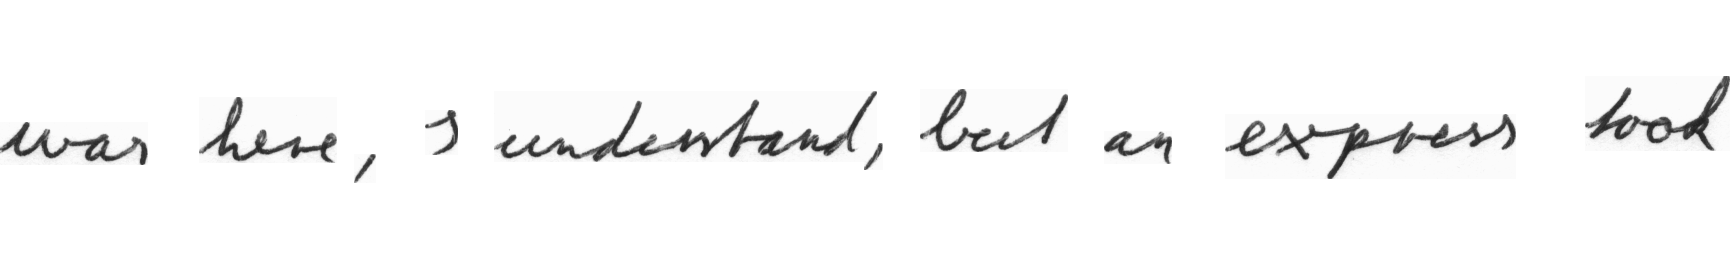 was here, I understand, but an express took